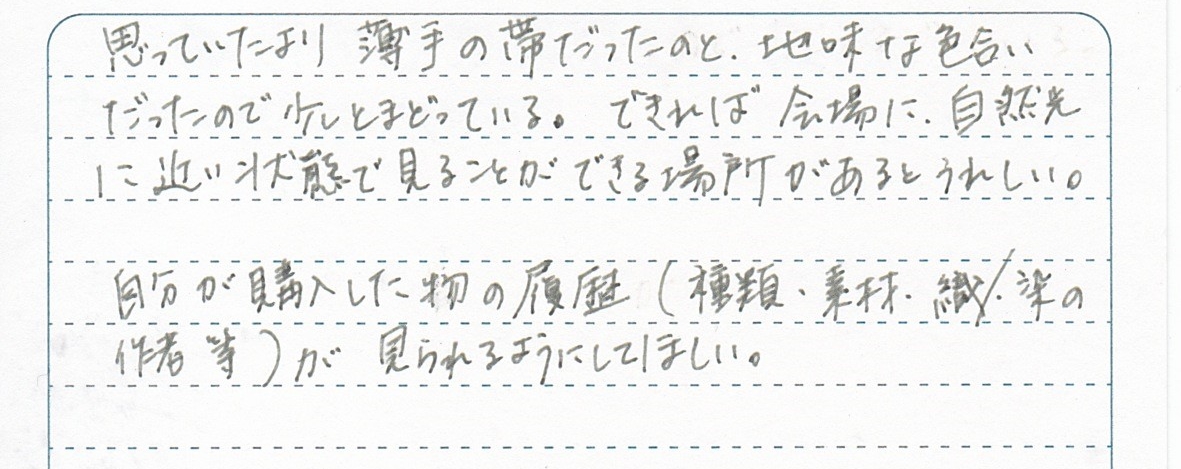 思っていたより薄手の帯だったのと、地味な色合い
だったので少しとまどっている。できれば会場に、自然光
に近い状態で見ることができる場所があるとうれしい。
自分が購入した物の履歴（種類・素材・織/染の
作者等）が見られるようにしてほしい。